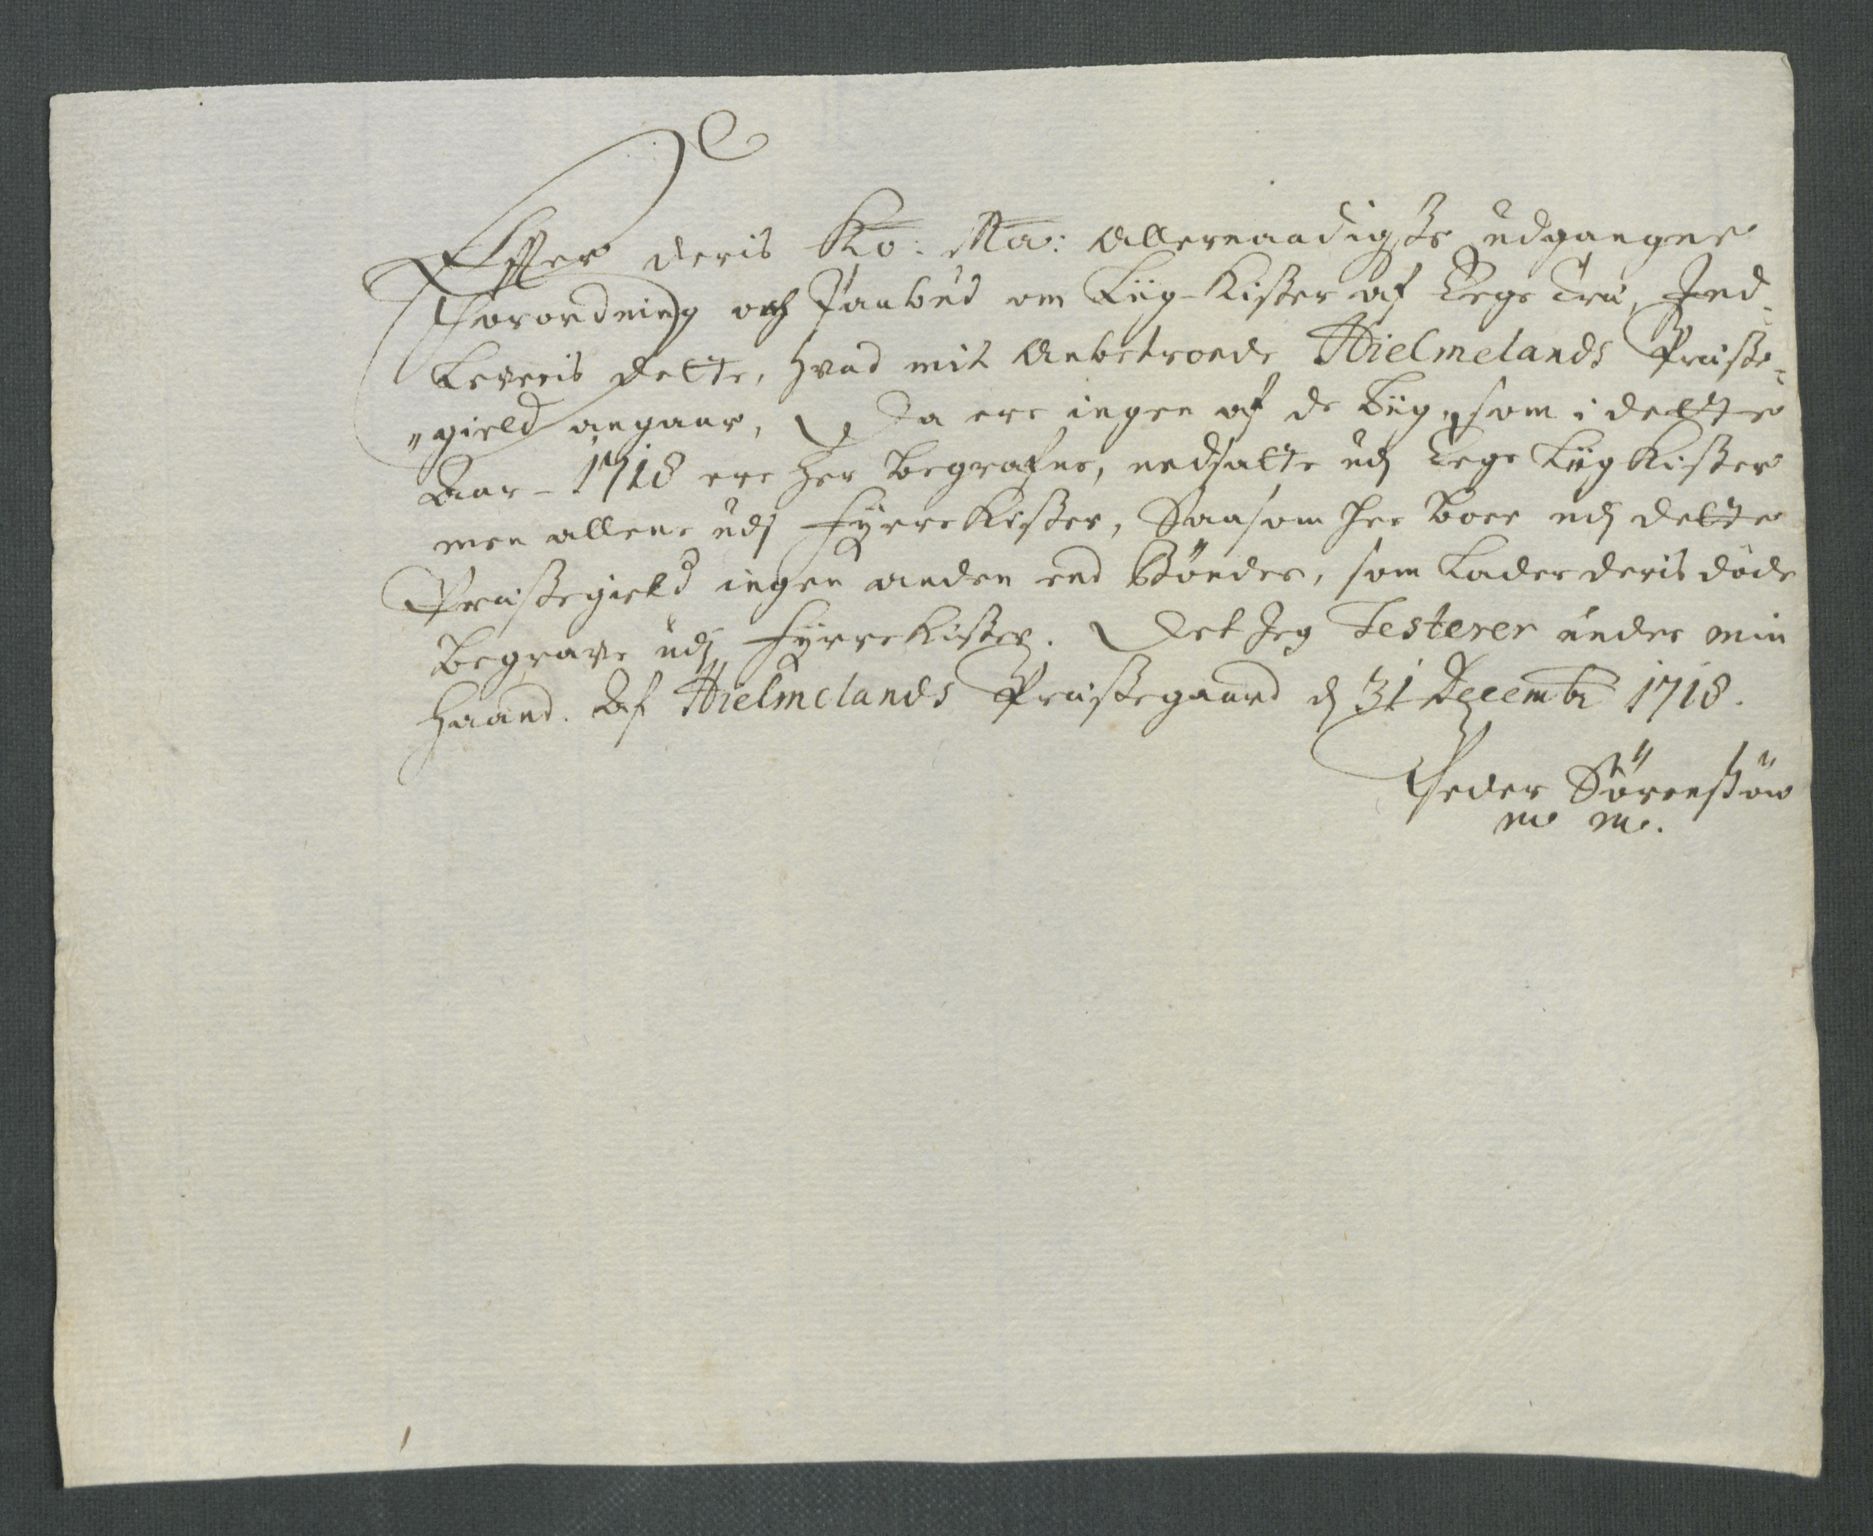 Effter deris Ko: Ma: Allernaadigste udgangne
Forordning och Paabud om Liig-Kister af Eege Træ, Ind-
Leveris dette, hvad mit Anbetroede Hielmelands Præste-
„gield angaar, Da ere ingen af de Liig, som i dette
Aar - 1718 ere her begrafne, nedsatte udj Eege Liig Kister
men allene udj Fyrre Kister, Saasom her boer udj dette
Præstegield ingen anden end Bönder, som Lader deris döde
begrave udj Fyrre Kister. Det Jeg Testerer under min
Haand. Af Hielmelands Præstegaard d 31 Decembr 1718.
Peder Sörensön
m m.